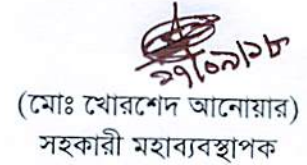 ২৭/০৯/১৮
(মোঃ খোরশেদ আনোয়ার)
সহকারী মহাব্যবস্থাপক